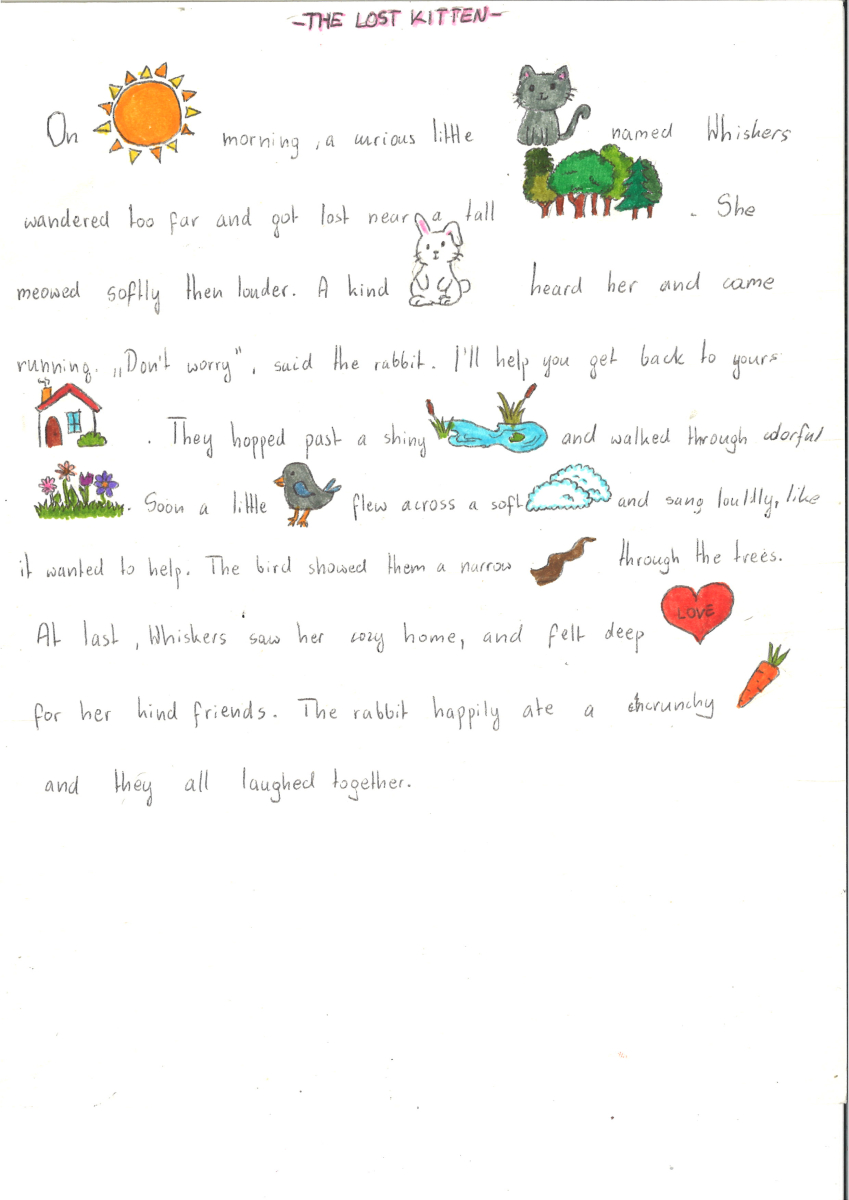 -THE LOST KITTEN-
On morning, a curious little named Whiskers
wandered too far and got lost near a tall . She
meowed softly then louder. A kind heard her and came
running. „Don't worry", said the rabbit. I'll help you get back to yours
. They hopped past a shiny and walked through colorful
. Soon a little flew across a soft and sang louldly, like
it wanted to help. The bird showed them a narrow through the trees.
At last, Whiskers saw her cozy home, and felt deep LOVE
for her kind friends. The rabbit happily ate a crunchy
and they all laughed together.